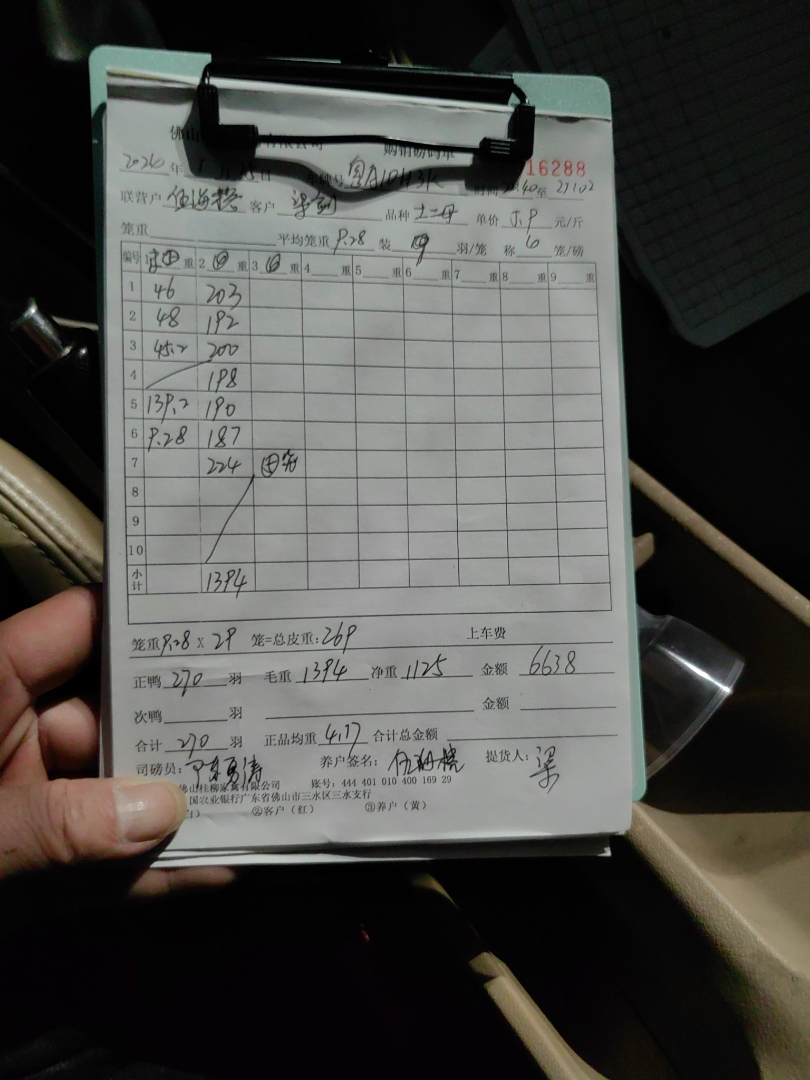 佛山 有限公司 购销磅码单
2026年1月 日 车牌号 粤A10H3K 16288
联营户 客户 品种 土二母 单价 5.9 元/斤
笼重 平均笼重 9.28 装 羽/笼 称 6 笼/磅
编号 1 重 2 重 3 重 4 重 5 重 6 重 7 重 8 重 9 重
1 46 203
2 48 192
3 45.2 200
4 198
5 139.2 190
6 9.28 187
7 224
8
9
10
小计 1394
笼重 9.28 x 29 笼=总皮重: 269 上车费
正鸭 270 羽 毛重 1394 净重 1125 金额 6638
次鸭 羽 金额
合计 270 羽 正品均重 4.17 合计总金额
司磅员: 养户签名: 提货人: 梁
佛山桂柳家禽有限公司 账号: 444 401 010 400 169 29
国农业银行广东省佛山市三水区三水支行
白） ②客户（红） ③养户（黄）